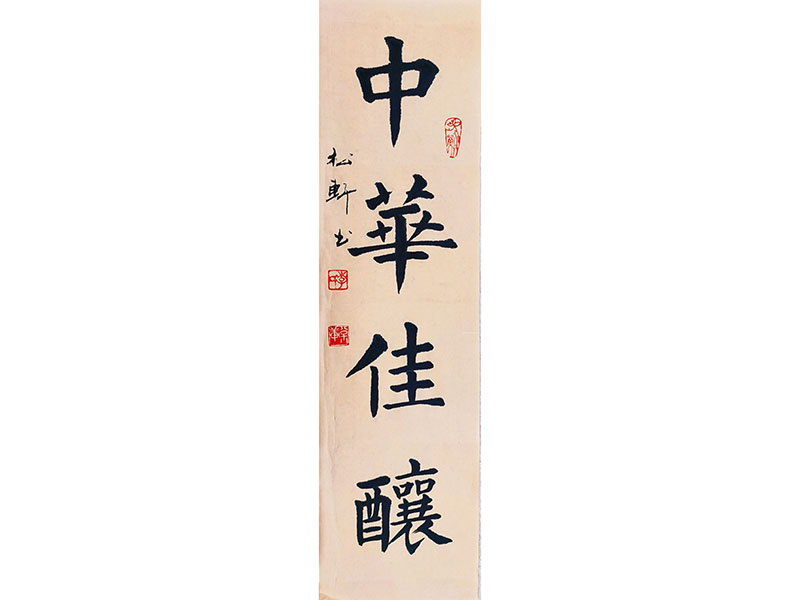 中華佳釀
松軒书